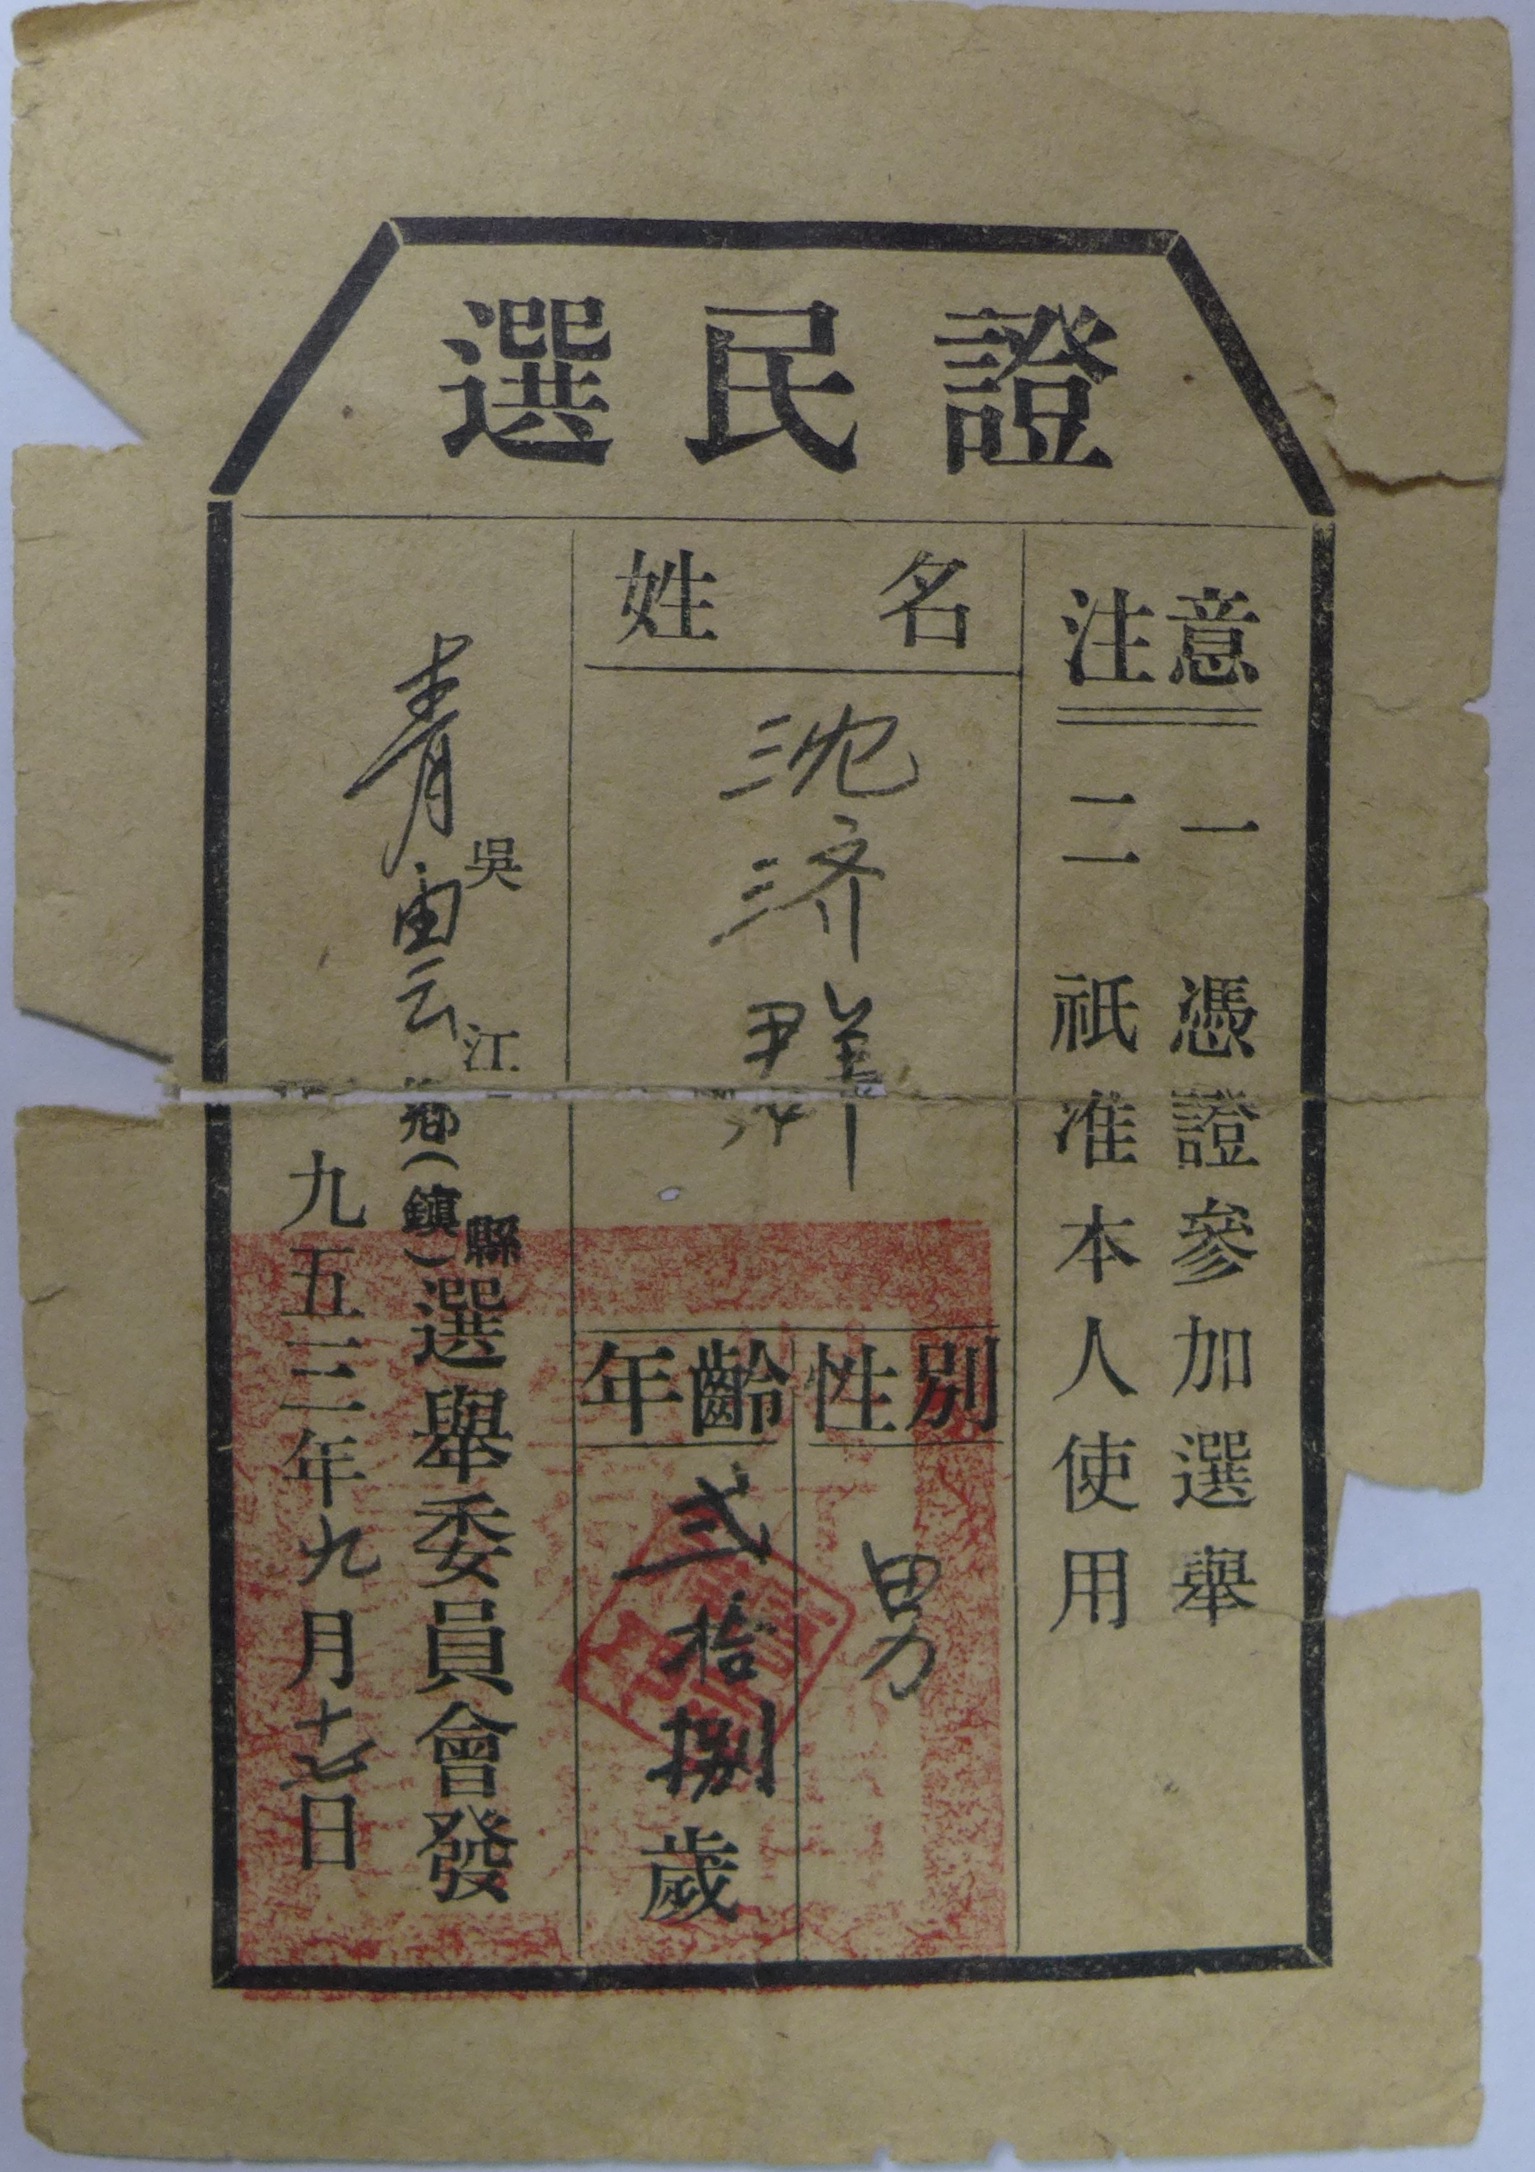 選民證
注意
一 憑證參加選舉
二 祇准本人使用
姓名
沈济群
性別
男
年齡
弍拾捌歲
吳江縣
青雲鄉(鎮)選舉委員會發
九五三年九月十七日